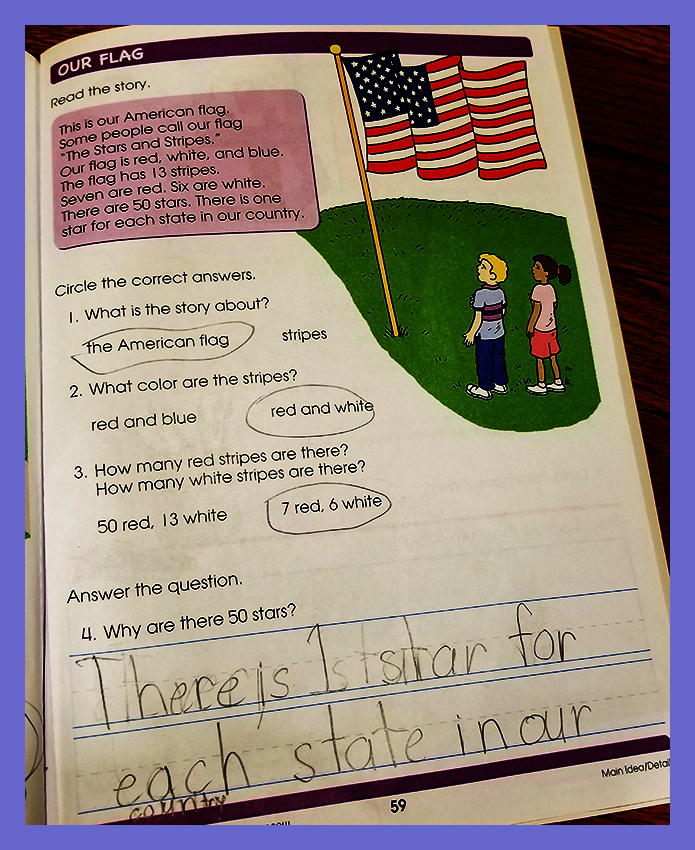 OUR FLAG
Read the story.
This is our American flag.
Some people call our flag
"The Stars and Stripes."
Our flag is red, white, and blue.
The flag has 13 stripes.
Seven are red. Six are white.
There are 50 stars. There is one
star for each state in our country.
Circle the correct answers.
1. What is the story about?
the American flag stripes
2. What color are the stripes?
red and blue red and white
3. How many red stripes are there?
How many white stripes are there?
50 red, 13 white 7 red, 6 white
Answer the question.
4. Why are there 50 stars?
There is 1 star for
each state in our
country
Main Idea/Detail
59